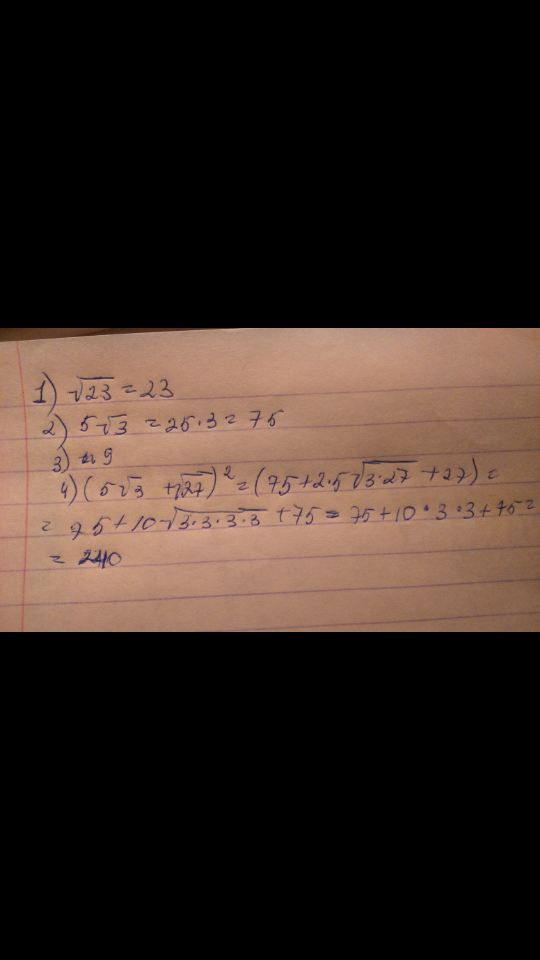 1) √23 = 23
2) 5√3 = 25·3 = 75
3) 9
4) (5√3 + √27)² = (75+2·5√3·27 + 27) =
= 75+10√3·3·3·3 + 75 = 75+10·3·3+75 =
= 240